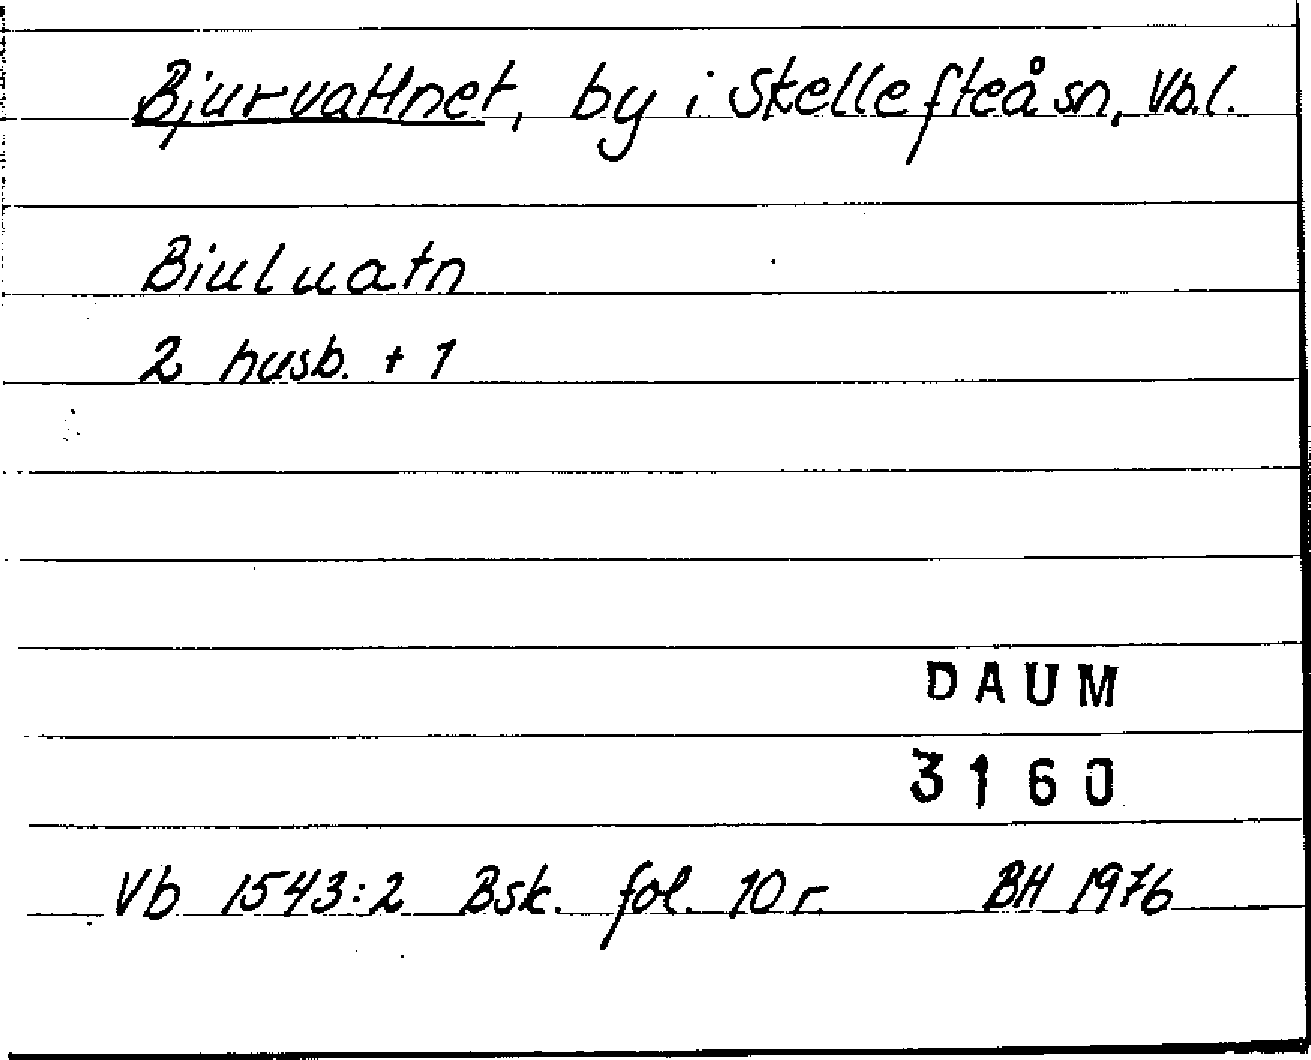 Bjurvattnet, by i Skellefteå sn, Vb.l.
Biuluatn
2 husb. + 1
DAUM
3160
Vb 1543:2 Bsk. fol. 10 r. BH 1976